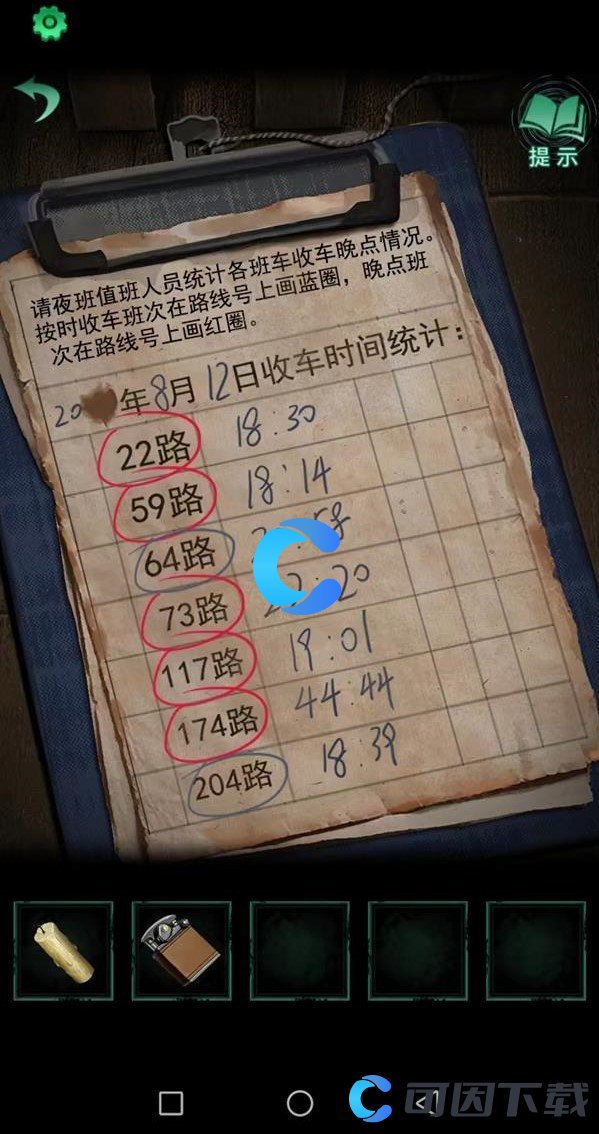 提示
请夜班值班人员统计各班车收车晚点情况。
按时收车班次在路线号上画蓝圈，晚点班
次在路线号上画红圈。
20 年8月12日收车时间统计：
22路 18:30
59路 18:14
64路 :58
73路 :20
117路 19:01
174路 44:44
204路 18:39
可因下载